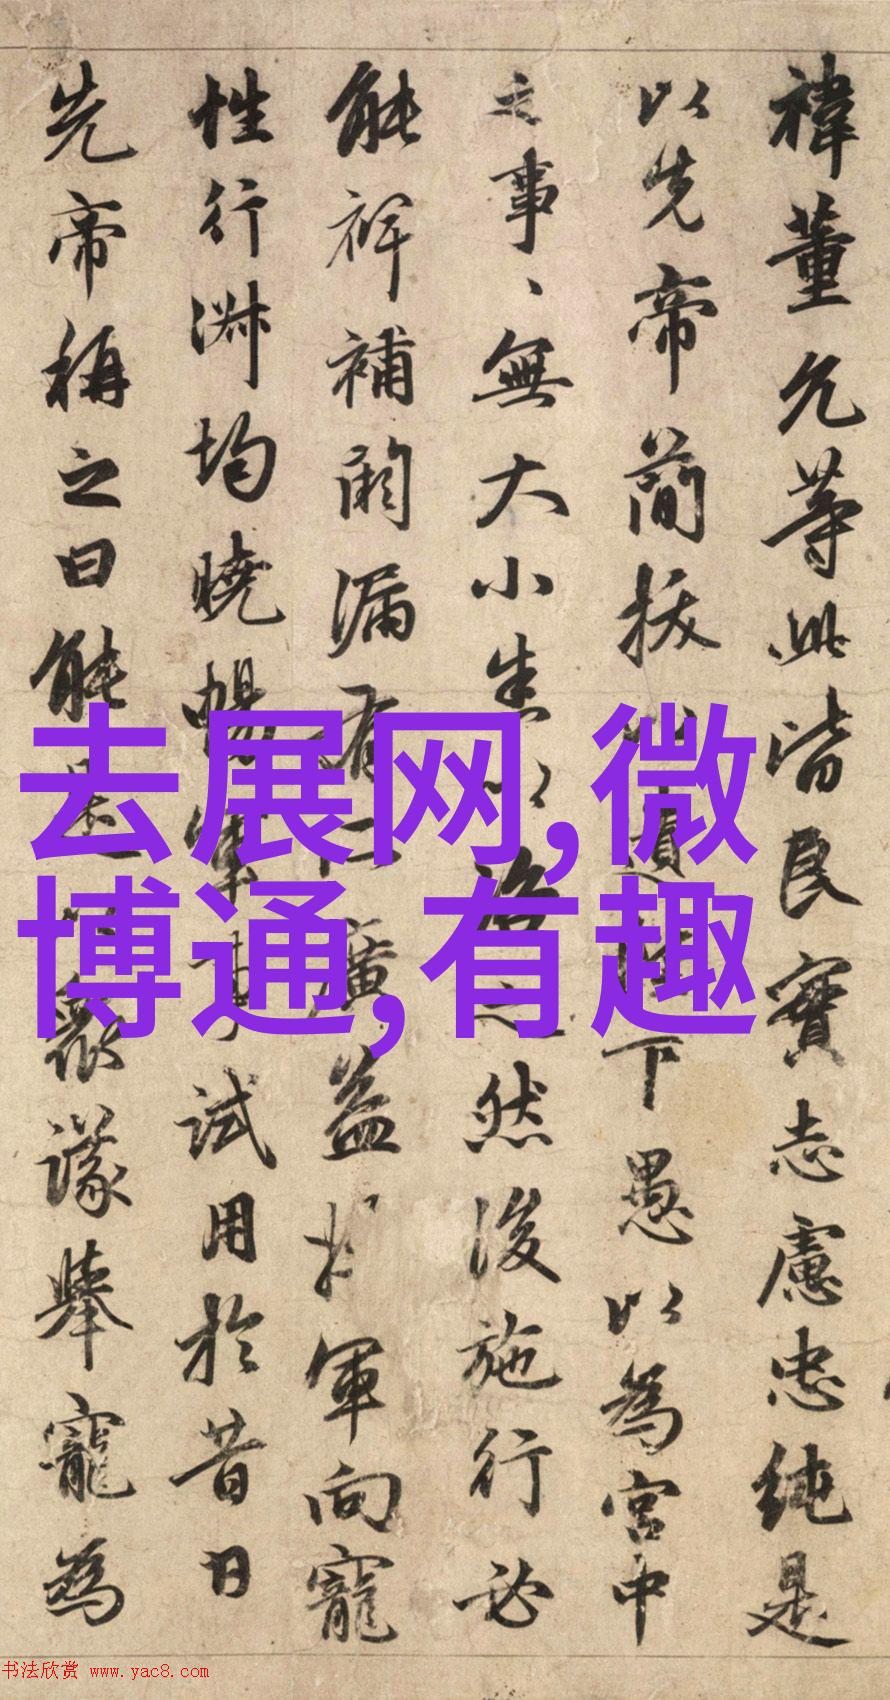 禕董允等此皆良實志慮忠純是
以先帝簡拔以遺陛下愚以為宮中
之事、無大小悉以諮之然後施行必
能裨補闕漏有所廣益將軍向寵
性行淑均曉暢軍事試用於昔日
先帝稱之曰能是以衆議舉寵為
去展网,微
博通,有趣
书法欣赏 www.yac8.com